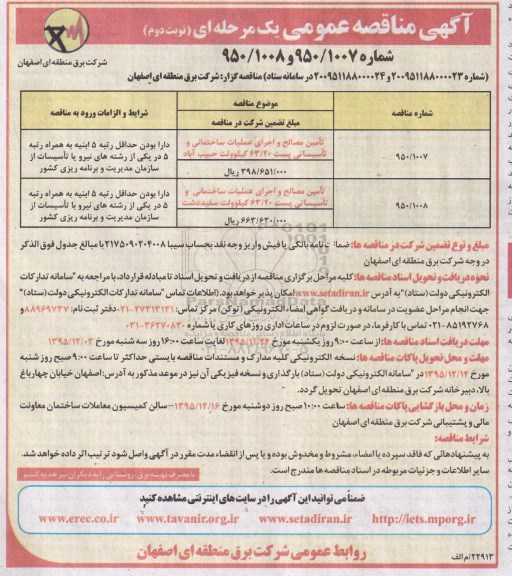 آگهی مناقصه عمومی یک مرحله ای (نوبت دوم)
شماره ۹۵۰/۱۰۰۷ و ۹۵۰/۱۰۰۸
شرکت برق منطقه ای اصفهان
(شماره ۲۰۰۹۵۱۱۸۸۰۰۰۰۲۳ و ۲۰۰۹۵۱۱۸۸۰۰۰۰۲۴ در سامانه ستاد) مناقصه گزار: شرکت برق منطقه ای اصفهان
شماره مناقصه
موضوع مناقصه
مبلغ تضمین شرکت در مناقصه
شرایط و الزامات ورود به مناقصه
۹۵۰/۱۰۰۷
تأمین مصالح و اجرای عملیات ساختمانی و
تأسیساتی پست ۶۳/۲۰ کیلوولت حبیب آباد
۳۹۸/۶۵۱/۰۰۰ ریال
دارا بودن حداقل رتبه ۵ ابنیه به همراه رتبه
۵ در یکی از رشته های نیرو یا تأسیسات از
سازمان مدیریت و برنامه ریزی کشور
۹۵۰/۱۰۰۸
تأمین مصالح و اجرای عملیات ساختمانی و
تأسیساتی پست ۶۳/۲۰ کیلوولت سفیددشت
۶۶۳/۶۳۰/۰۰۰ ریال
دارا بودن حداقل رتبه ۵ ابنیه به همراه رتبه
۵ در یکی از رشته های نیرو یا تأسیسات از
سازمان مدیریت و برنامه ریزی کشور
مبلغ و نوع تضمین شرکت در مناقصه ها: ضمانت نامه بانکی یا فیش واریز وجه نقد بحساب سیبا ۲۱۷۵۰۹۰۲۰۴۰۰۸ با مبالغ جدول فوق الذکر
در وجه شرکت برق منطقه ای اصفهان
نحوه دریافت و تحویل اسناد مناقصه ها: کلیه مراحل برگزاری مناقصه از دریافت و تحویل اسناد تا مبادله قرارداد، با مراجعه به "سامانه تدارکات
الکترونیکی دولت (ستاد)" به آدرس www.setadiran.ir امکان پذیر خواهد بود. (اطلاعات تماس "سامانه تدارکات الکترونیکی دولت (ستاد)"
جهت انجام مراحل عضویت در سامانه و دریافت گواهی امضاء الکترونیکی (توکن) مرکز تماس: ۲۷۳۱۳۱۳۱-۰۲۱ دفتر ثبت نام: ۸۸۹۶۹۷۳۷ و
۸۵۱۹۲۷۶۸-۰۲۱) تماس با کارفرما، در صورت لزوم در ساعات اداری روزهای کاری با شماره ۳۶۲۷۰۸۲۰-۰۳۱
مهلت دریافت اسناد مناقصه ها: از ساعت ۹:۰۰ روز یکشنبه مورخ ۱۳۹۵/۱۱/۲۴ لغایت ساعت ۱۶:۰۰ روز سه شنبه مورخ ۱۳۹۵/۱۲/۰۳
مهلت و محل تحویل پاکات مناقصه ها: نسخه الکترونیکی کلیه مدارک و مستندات مناقصه بایستی حداکثر تا ساعت ۹:۰۰ صبح روز شنبه
مورخ ۱۳۹۵/۱۲/۱۴ در "سامانه الکترونیکی دولت (ستاد)" بارگذاری و نسخه فیزیکی آن نیز در موعد مذکور به آدرس: اصفهان خیابان چهارباغ
بالا، دبیرخانه شرکت برق منطقه ای اصفهان تحویل گردد.
زمان و محل بازگشایی پاکات مناقصه ها: ساعت ۱۰:۰۰ صبح روز دوشنبه مورخ ۱۳۹۵/۱۲/۱۶ - سالن کمیسیون معاملات ساختمان معاونت
مالی و پشتیبانی شرکت برق منطقه ای اصفهان
شرایط مناقصه:
به پیشنهادهائی که فاقد سپرده یا امضاء، مشروط و مخدوش بوده و یا پس از انقضاء مدت مقرر در آگهی واصل شود ترتیب اثر داده خواهد شد.
سایر اطلاعات و جزئیات مربوطه در اسناد مناقصه ها مندرج است.
با مصرف بهینه برق، روشنایی را به دیگران نیز هدیه کنیم
ضمناً می توانید این آگهی را در سایت های اینترنتی مشاهده کنید
http://iets.mporg.ir www.setadiran.ir www.tavanir.org.ir www.erec.co.ir
روابط عمومی شرکت برق منطقه ای اصفهان
۲۲۹۱۳/م الف